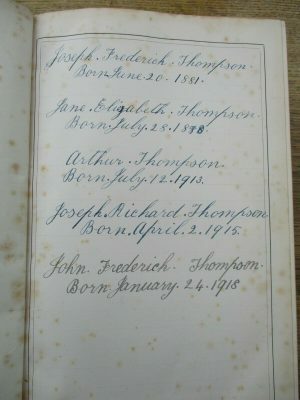 Joseph. Frederick. Thompson.
Born June. 20. 1881.
Jane. Elizabeth. Thompson.
Born. July. 28. 1878.
Arthur. Thompson.
Born. July. 12. 1913.
Joseph. Richard. Thompson
Born. April. 2. 1915.
John. Frederick. Thompson.
Born. January. 24. 1918